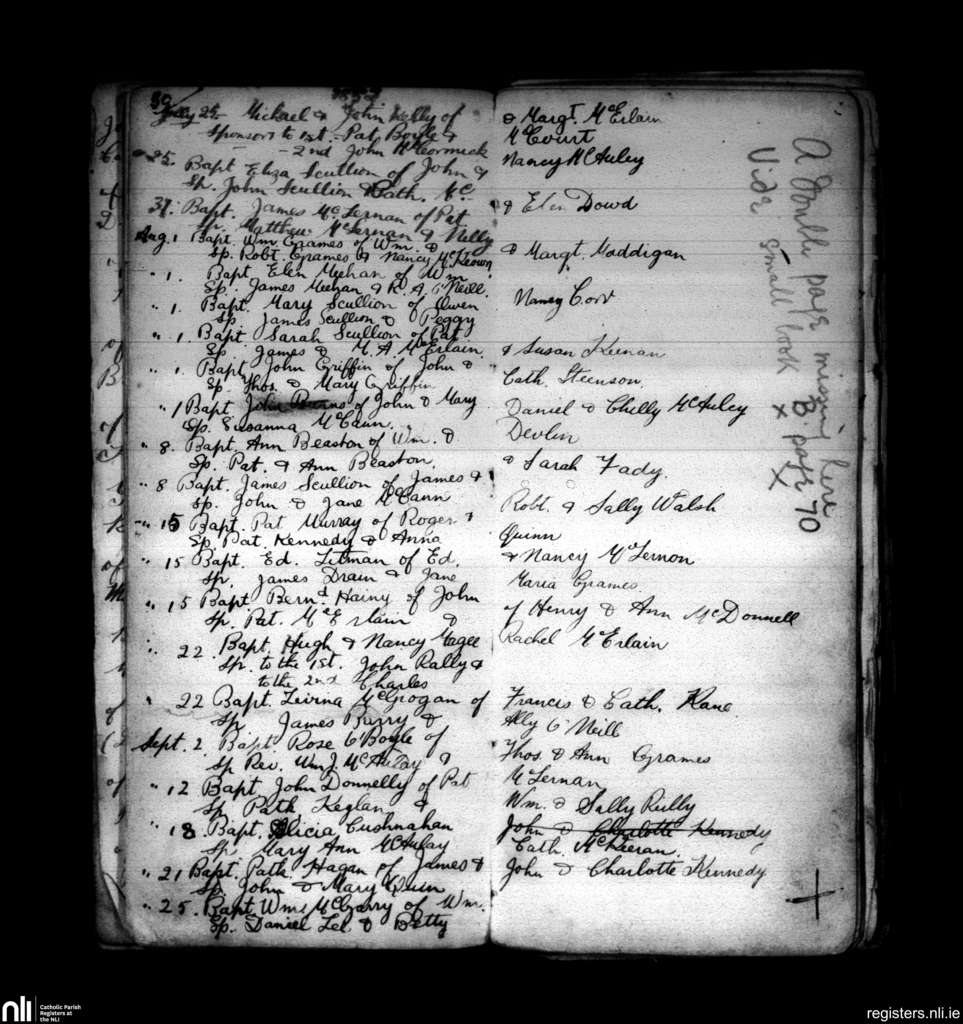 39
July 25 Michael & John Kelly of
Sponsors to 1st - Pat Boyle &
- - 2nd John McCormick
" 25. Bapt Eliza Scullion of John &
Sp. John Scullion & Cath. Mc.
31. Bapt. James McLernan of Pat
Sp. Matthew McLernan & Nelly
Aug. 1 Bapt. Wm Grames of Wm. &
Sp. Robt. Grames & Nancy McKeown
" 1. Bapt. Elen Meehan of Wm
Sp. James Meehan & R. A. O'Neill.
" 1. Bapt. Mary Scullion of Owen
Sp. James Scullion & Peggy
" 1. Bapt Sarah Scullion of Pat
Sp. James & M. A McErlain.
" 1. Bapt. John Griffin of John &
Sp. Thos. & Mary Griffin
" 1 Bapt. John Burns of John & Mary
Sp. Susanna McCann.
" 8. Bapt. Ann Beaston of Wm. &
Sp. Pat. & Ann Beaston.
" 8 Bapt. James Scullion of James &
Sp. John & Jane McCann
" 15 Bapt. Pat Murray of Roger &
Sp. Pat. Kennedy & Anna
" 15 Bapt. Ed. Litman of Ed.
Sp. James Drain & Jane
" 15 Bapt Bernd Hainy of John
Sp. Pat. McErlain &
" 22. Bapt. Hugh & Nancy Magee
Sp. to the 1st. John Rally &
to the 2nd Charles
" 22 Bapt. Livina McGrogan of
Sp James Burry &
Sept. 2. Bapt. Rose O'Boyle of
Sp Rev. Wm J. McAulay &
" 12 Bapt. John Donnelly of Pat
Sp Patk Keglan &
" 18 Bapt. Alicia Cushnahan
Sp Mary Ann McAulay
" 21 Bapt. Patk. Hagan of James &
Sp. John & Mary Quin
" 25. Bapt Wm McGarry of Wm.
Sp. Daniel Lel & Betty
& Margt. McErlain
McCourt
Nancy McAuley
& Elen Dowd
& Margt. Maddigan
Nancy Corr
& Susan Keenan
Cath. Steenson.
Daniel & Chelly McAuley
Devlin
& Sarah Fady.
Robt. & Sally Walsh
Quinn
& Nancy McLernon
Maria Grames
of Henry & Ann McDonnell
Rachel McErlain
Francis & Cath. Kane
Ally O'Neill
Thos. & Ann Grames
McLernan
Wm. & Sally Rully
John & Charlotte Kennedy
Cath. McKieran.
John & Charlotte Kennedy
A double page missing here
Vide small book B. page 70
x x
nli
Catholic Parish
Registers at
the NLI
registers.nli.ie